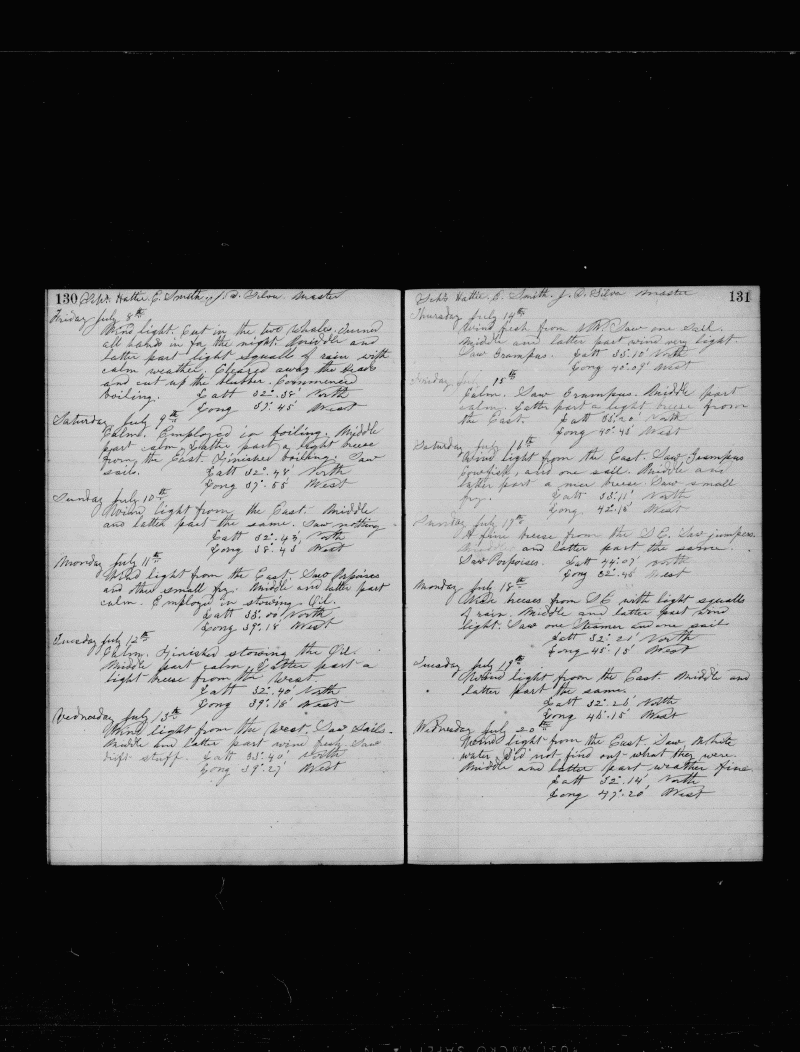 130 Schr. Hattie E. Smith. J. A. Silva. Master
Friday July 8th
Wind light. Cut in the two Whales. Turned
all hands in for the night. Middle and
latter part light squalls of rain with
calm weather. Cleared away the Decks
and cut up the blubber. Commenced
boiling. Latt 32°.38' North
Long 37°.45' West
Saturday July 9th
Calms. Employed in boiling. Middle
part calm. Latter part a light breese
from the East. Finished boiling. Saw
sails. Latt 32°.48' North
Long 37°.55' West
Sunday July 10th
Wind light from the East. Middle
and latter part the same. Saw nothing.
Latt 32°.43' North
Long 38°.43' West
Monday July 11th
Wind light from the East. Saw Porpoises
and other small fry. Middle and latter part
calm. Employed in stowing Oil.
Latt 33°.00' North
Long 39°.18' West
Tuesday July 12th
Calm. Finished stowing the Oil.
Middle part calm. Latter part a
light breese from the West.
Latt 32°.40' North
Long 39°.18' West
Wednesday July 13th
Wind light from the West. Saw Sails.
Middle and latter part wind fresh. Saw
drift stuff. Latt 33°.40' North
Long 39°.27' West
Schr Hattie E. Smith. J. A. Silva Master 131
Thursday July 14th
Wind fresh from NW. Saw one Sail.
Middle and latter part wind very light.
Saw Grampus. Latt 33°.10' North
Long 40°.09' West
Friday July 15th
Calm. Saw Grampus. Middle part
calm. Latter part a light breese from
the East. Latt 33°.20' North
Long 40°.45' West
Saturday July 16th
Wind light from the East. Saw Grampus
Cowfish, and one sail. Middle and
latter part a nice breese. Saw small
fry. Latt 33°.11' North
Long 42°.18' West
Sunday July 17th
A fine breese from the S.E. Saw jumpers.
Middle and latter part the same.
Saw Porpoises. Latt 44°.07' North
Long 32°.48' West
Monday July 18th
Wide breeses from S.E. with light squalls
of rain. Middle and latter part wind
light. Saw one Steamer and one sail
Latt 32°.21' North
Long 45°.15' West
Tuesday July 19th
Wind light from the East. Middle and
latter part the same.
Latt 32°.26' North
Long 46°.15' West
Wednesday July 20th
Wind light from the East. Saw White
water. Did not find out what they were.
Middle and latter part weather fine.
Latt 32°.14' North
Long 47°.20' West